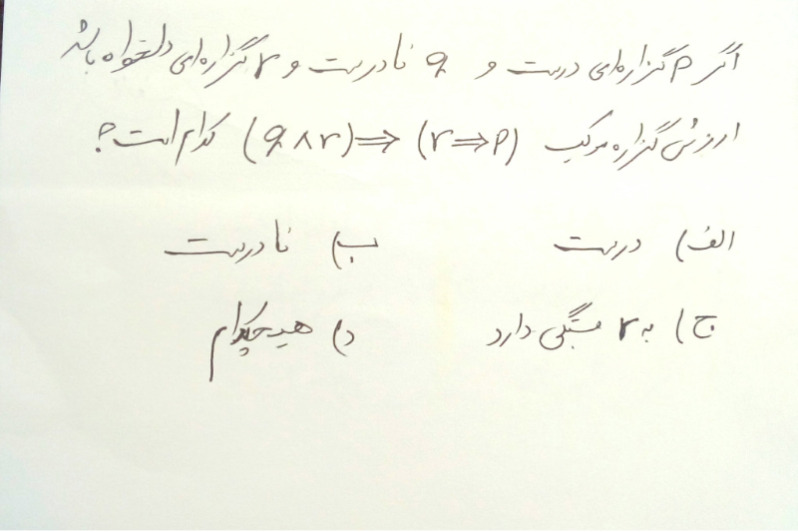 اگر p گزاره‌ای درست و q نادرست و r گزاره‌ای دلخواه باشد
ارزش گزاره مرکب (q ∧ r) ⇒ (r ⇒ p) کدام است؟
الف) درست ب) نادرست
ج) به r بستگی دارد د) هیچکدام